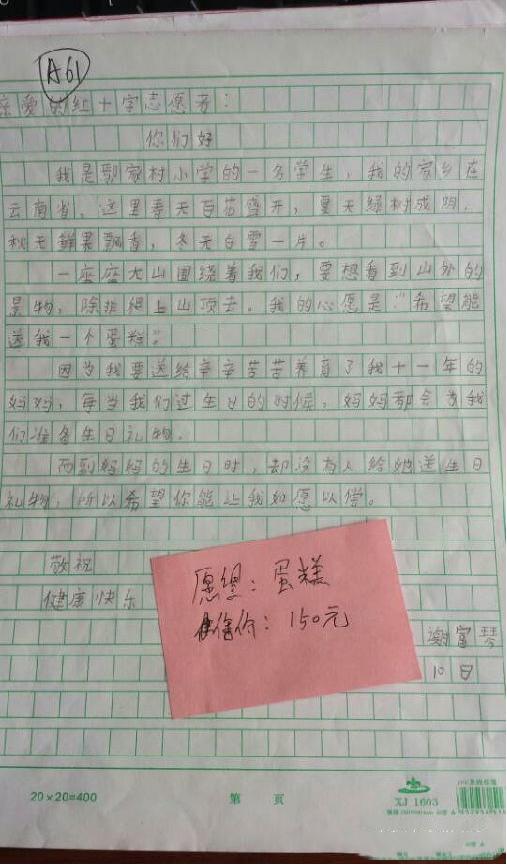 A61
亲爱的红十字志愿者：
你们好
我是鄂家村小学的一名学生，我的家乡在
云南省，这里春天百花盛开，夏天绿树成阴，
秋天鲜果飘香，冬天白雪一片。
一座座大山围绕着我们，要想看到山外的
景物，除非爬上山顶去。我的心愿是“希望能
送我一个蛋糕”。
因为我要送给辛辛苦苦养育了我十一年的
妈妈，每当我们过生日的时候，妈妈都会为我
们准备生日礼物。
而到妈妈的生日时，却没有人给她送生日
礼物，所以希望你能让我如愿以偿。
敬祝
健康快乐
愿望：蛋糕
估价：150元
谢富琴
10日
20×20=400
第 页
XJ 1603